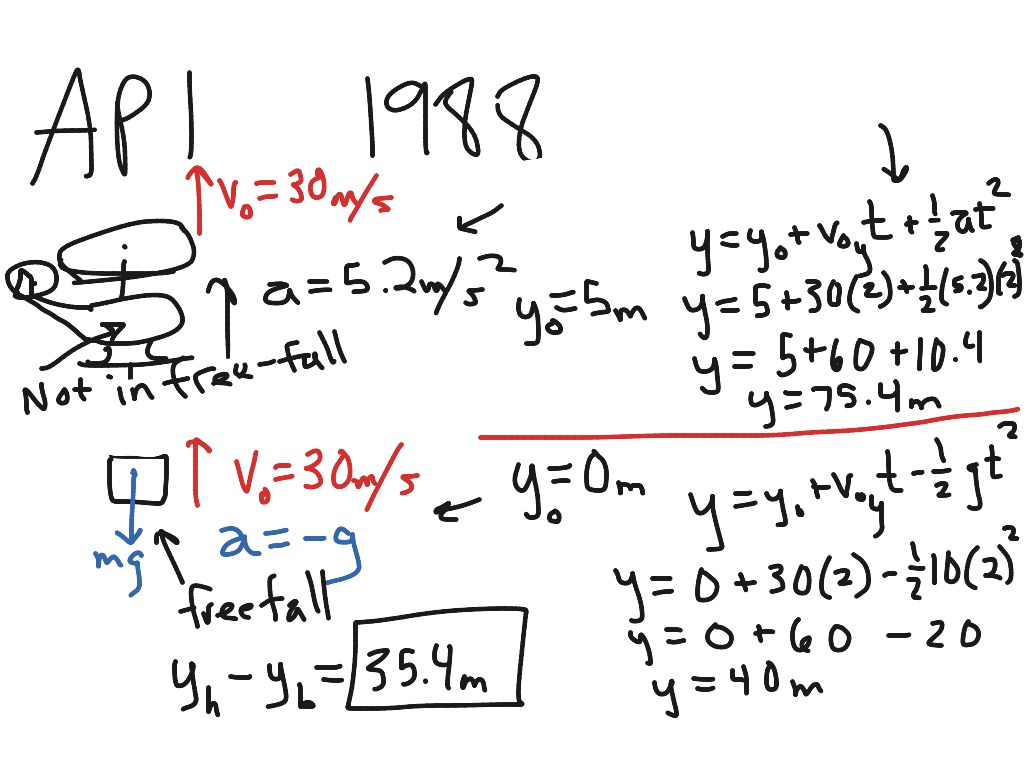 AP 1 1988
v₀ = 30 m/s
a = 5.2 m/s²
y₀ = 5 m
Not in free-fall
y = y₀ + v₀y t + ½ at²
y = 5 + 30(2) + ½(5.2)(2)²
y = 5 + 60 + 10.4
y = 75.4 m
v₀ = 30 m/s
y₀ = 0 m
mg
a = -g
free fall
y = y₀ + v₀y t - ½ gt²
y = 0 + 30(2) - ½ 10(2)²
y = 0 + 60 - 20
y = 40 m
yh - yb = 35.4 m